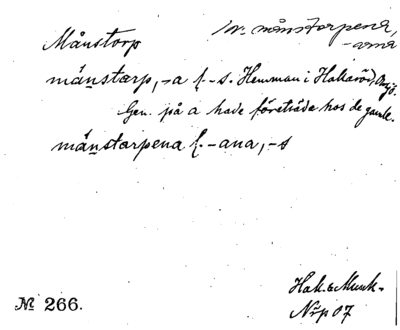 Månstorp
/sv. månstorpena,
-arna
månstɑrp, -a f. -s. Hemman i Hallaröd, Onsjö.
Gen. på a hade företräde hos de gamle.
månstarpena f. -ana, -s
Hall. & Munk-
Nrp 07
№ 266.